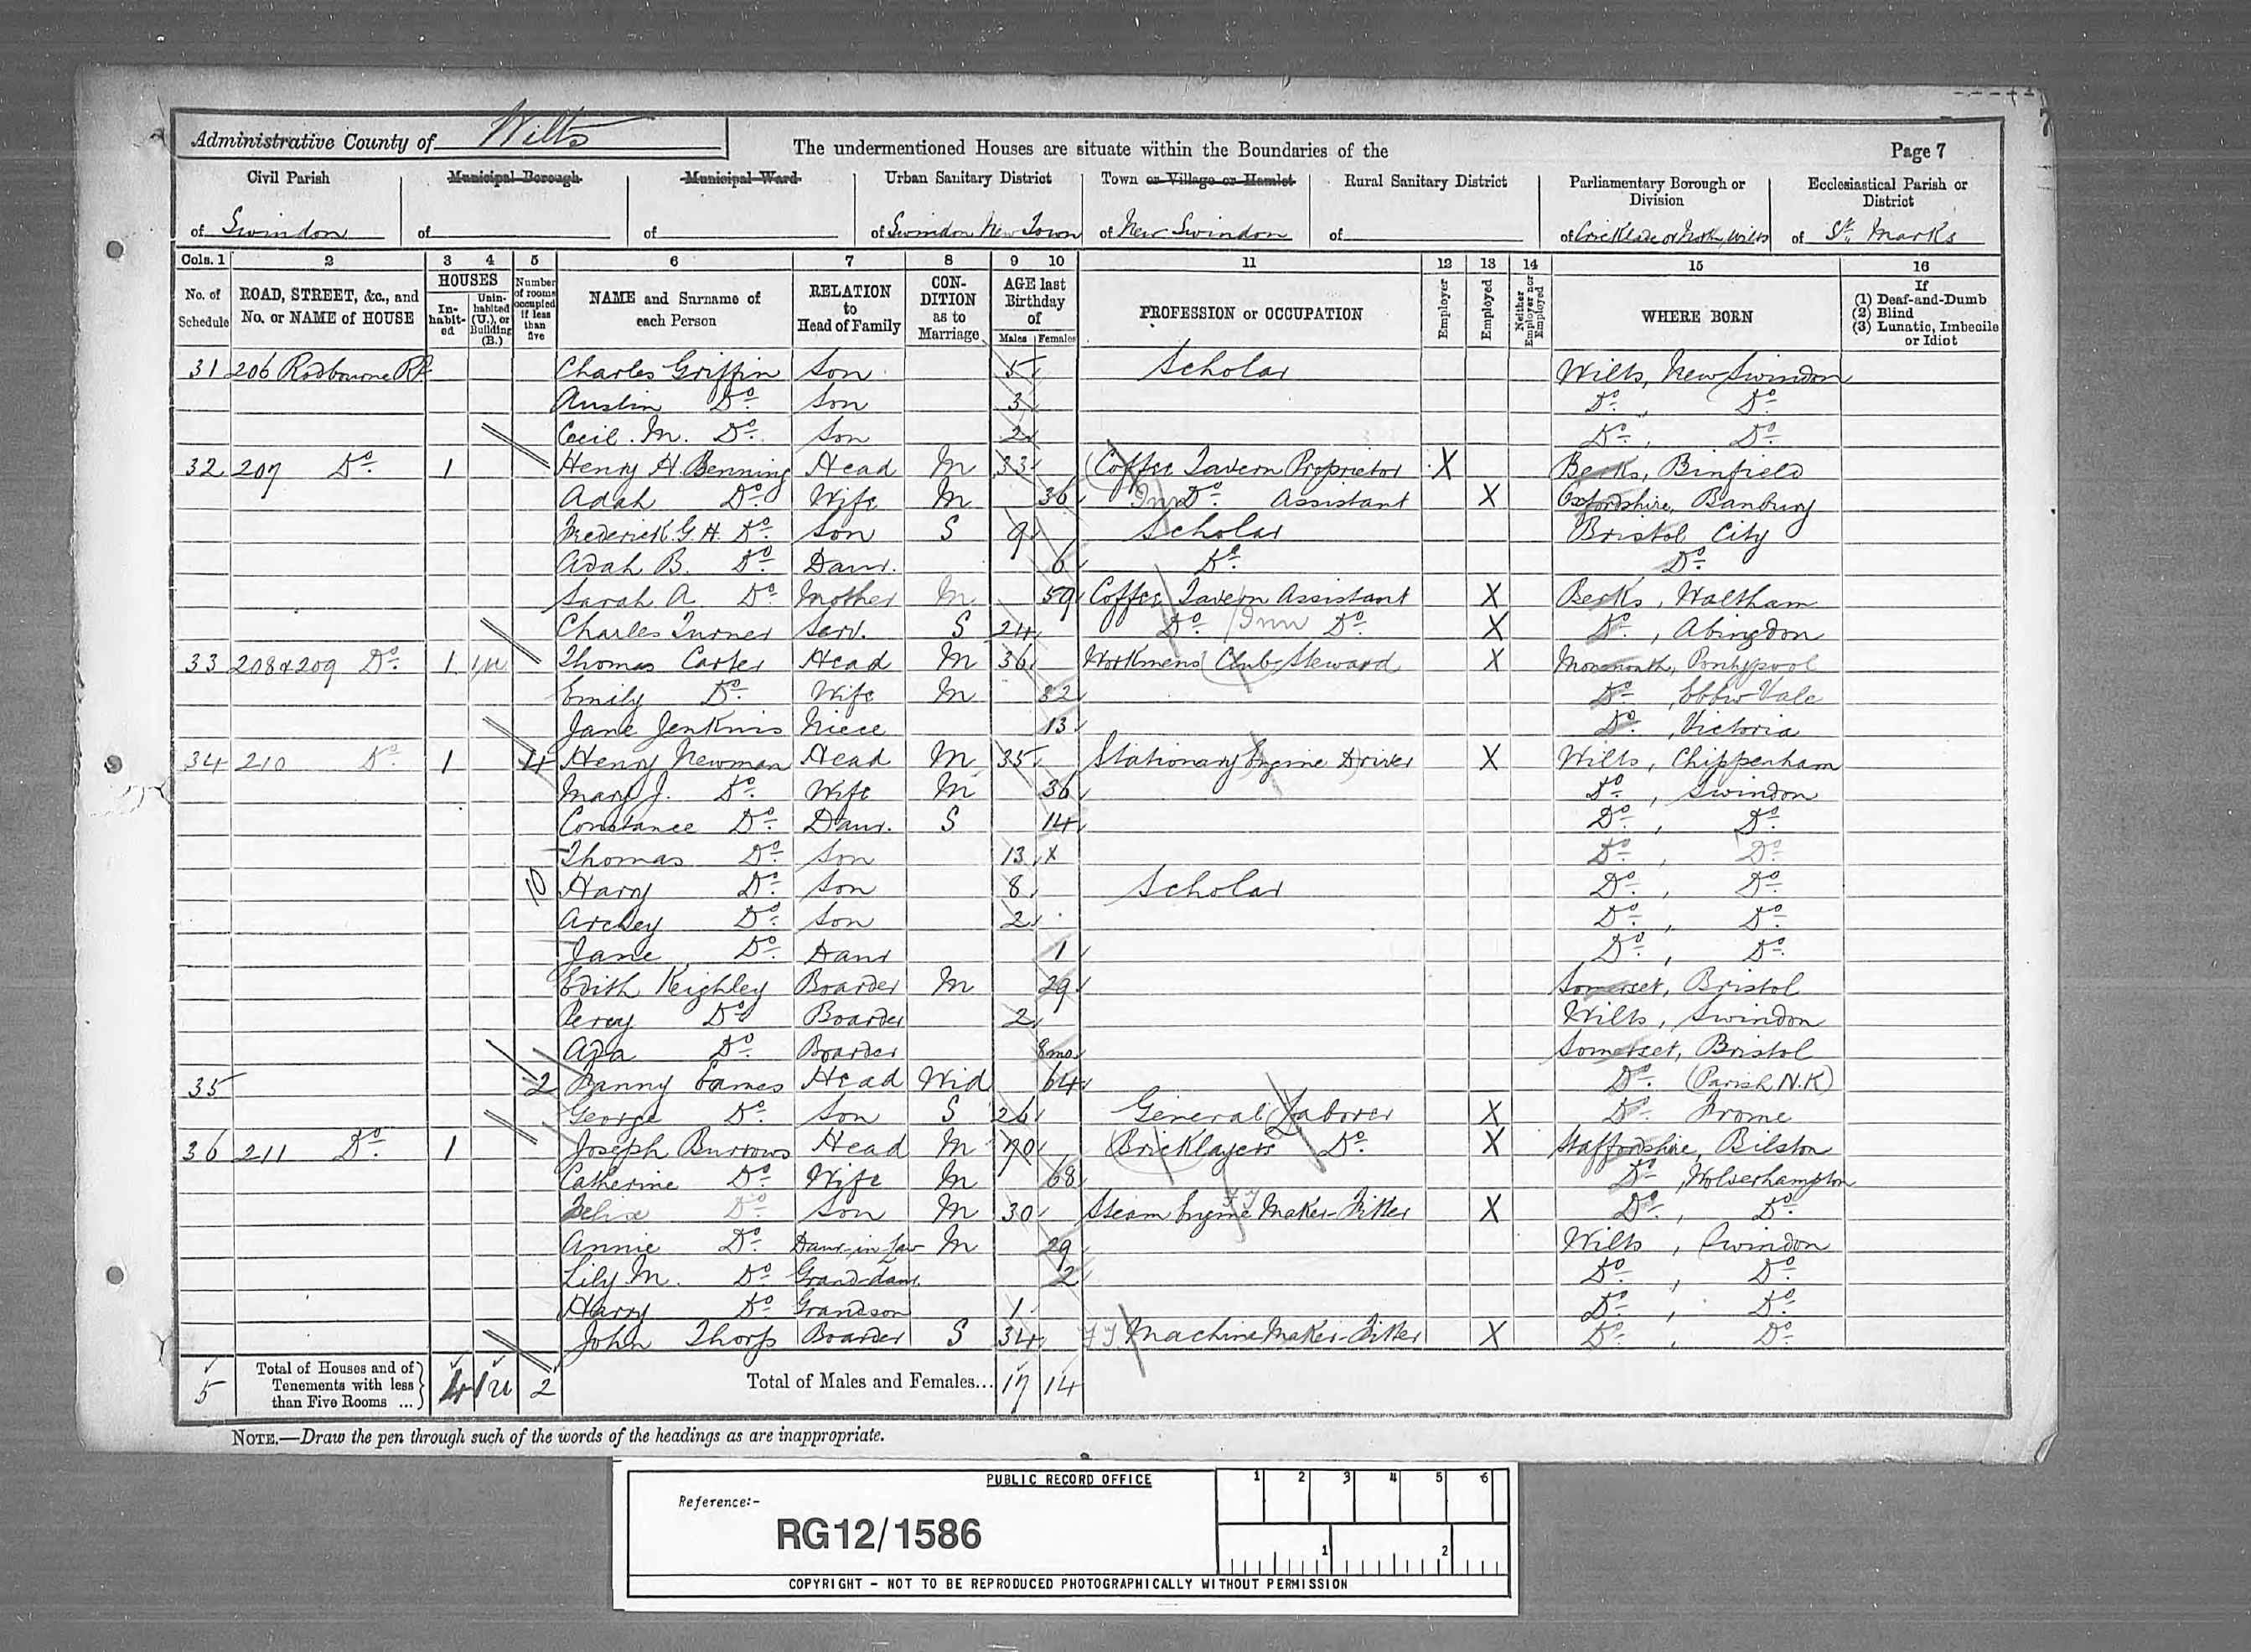 Administrative County of Wilts
The undermentioned Houses are situate within the Boundaries of the
Page 7
Civil Parish of Swindon
Municipal Borough of
Municipal Ward of
Urban Sanitary District of Swindon New Town
Town or Village or Hamlet of New Swindon
Rural Sanitary District of
Parliamentary Borough or Division of Cricklade or North Wilts
Ecclesiastical Parish or District of St. Marks
Cols. 1 2 3 4 5 6 7 8 9 10 11 12 13 14 15 16
No. of Schedule
ROAD, STREET, &c., and No. or NAME of HOUSE
HOUSES
In-habit-ed
Unin-habited (U.), or Building (B.)
Number of rooms occupied if less than five
NAME and Surname of each Person
RELATION to Head of Family
CON-DITION as to Marriage
AGE last Birthday of
Males Females
PROFESSION or OCCUPATION
Employer
Employed
Neither Employer nor Employed
WHERE BORN
If
(1) Deaf-and-Dumb
(2) Blind
(3) Lunatic, Imbecile or Idiot
31 206 Rodbourne Rd Charles Griffin Son 5 Scholar Wilts, New Swindon
Austin Do. Son 3 Do. , Do.
Cecil. M. Do. Son 2 Do. , Do.
32 207 Do. 1 Henry H. Benning Head M 33 Coffee Tavern Proprietor X Berks, Binfield
Adah Do. Wife M 36 Inn Do. Assistant X Oxfordshire, Banbury
Frederick G. H. Do. Son S 9 Scholar Bristol City
Adah B. Do. Daur. 6 Do. Do.
Sarah A. Do. Mother M 59 Coffee Tavern Assistant X Berks, Waltham
Charles Turner Serv. S 24 Do. Inn Do. X Do. , Abingdon
33 208 & 209 Do. 1 1U Thomas Carter Head M 36 Workmens Club Steward X Monmouth, Pontypool
Emily Do. Wife M 32 Do. , Ebbw Vale
Jane Jenkins Niece 13 Do. , Victoria
34 210 Do. 1 4 Henry Newman Head M 35 Stationary Engine Driver X Wilts, Chippenham
Mary J. Do. Wife M 36 Do. , Swindon
Constance Do. Daur. S 14 Do. , Do.
Thomas Do. Son 13 X Do. , Do.
10 Hary Do. Son 8 Scholar Do. , Do.
Archey Do. Son 2 Do. , Do.
Jane Do. Daur 1 Do. , Do.
Edith Keighley Boarder M 29 Somerset, Bristol
Percy Do. Boarder 2 Wilts, Swindon
Ada Do. Boarder 8mo. Somerset, Bristol
35 2 Fanny Eames Head Wid 64 Do. (Parish N.K)
George Do. Son S 26 General Laborer X Do. Frome
36 211 Do. 1 Joseph Burrows Head M 70 Bricklayers Do. X Staffordshire, Bilston
Catherine Do. Wife M 68 Do. , Wolverhampton
Felix Do. Son M 30 Steam Engine Maker-Fitter X Do. , Do.
Annie Do. Daur-in-Law M 29 Wilts, Swindon
Lily M. Do. Grand-daur. 2 Do. , Do.
Harry Do. Grandson 1 Do. , Do.
John Thorp Boarder S 34 Machine Maker-Fitter X Do. , Do.
5 Total of Houses and of Tenements with less than Five Rooms ... 4 1U 2 Total of Males and Females... 17 14
NOTE.—Draw the pen through such of the words of the headings as are inappropriate.
PUBLIC RECORD OFFICE
1 2 3 4 5 6
Reference:-
RG12/1586
1 2
COPYRIGHT - NOT TO BE REPRODUCED PHOTOGRAPHICALLY WITHOUT PERMISSION